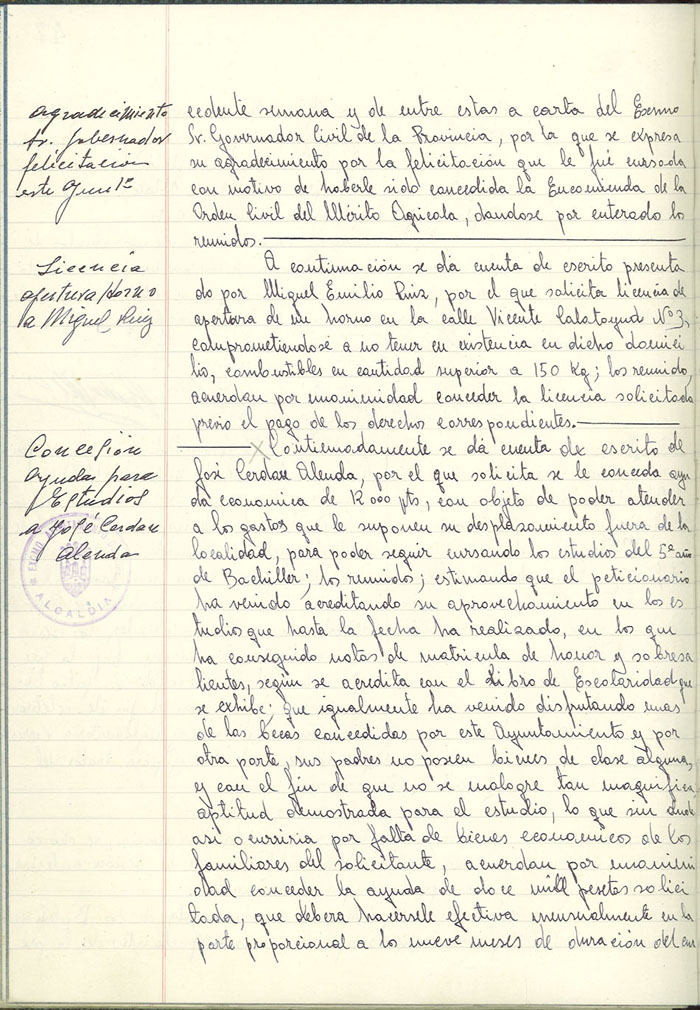 agradecimiento
Sr. Gobernador
felicitación
este Ayunt.º
cedente semana y de entre estas a carta del Excmo
Sr. Governador Civil de la Provincia, por la que se expresa
su agradecimiento por la felicitación que le fué cursada
con motivo de haberle sido concedida la Encomienda de la
Orden Civil del Mérito Agricola, dandose por enterado los
reunidos.
Licencia
apertura horno
a Miguel Ruiz
A continuación se dá cuenta de escrito presenta
do por Miguel Emilio Ruiz, por el que solicita licencia de
apertura de un horno en la calle Vicente Calatayud Nº 3,
comprometiendose a no tener en existencia en dicho domici
lio, combustibles en cantidad superior a 150 Kg; los reunido,
acuerdan por unanimidad conceder la licencia solicitada
previo el pago de los derechos correspondientes.
Concesión
ayudas para
Estudios
a José Cerdan
Alenda
EXCMO
ALCALDIA
Continuadamente se dá cuenta de escrito de
José Cerdan Alenda, por el que solicita se le conceda ayu
da economica de 12000 pts, con objeto de poder atender
a los gastos que le suponen su desplazamiento fuera de la
localidad, para poder seguir cursando los estudios del 5º año
de Bachiller; los reunidos; estimando que el peticionario
ha venido acreditando su aprovechamiento en los es
tudios que hasta la fecha ha realizado, en los que
ha conseguido notas de matricula de honor y sobresa
lientes, según se acredita con el Libro de Escolaridad que
se exhibe; que igualmente ha venido disfrutando unas
de las becas concedidas por este Ayuntamiento y por
otra parte, sus padres no poseen bienes de clase alguna,
y con el fin de que no se malogre tan magnifica
aptitud demostrada para el estudio, lo que sin duda
asi ocurriria por falta de bienes economicos de los
familiares del solicitante, acuerdan por unanimi
dad conceder la ayuda de doce mill pesetas solici
tada, que debera hacersele efectiva mensualmente en la
parte proporcional a los nueve meses de duración del cur